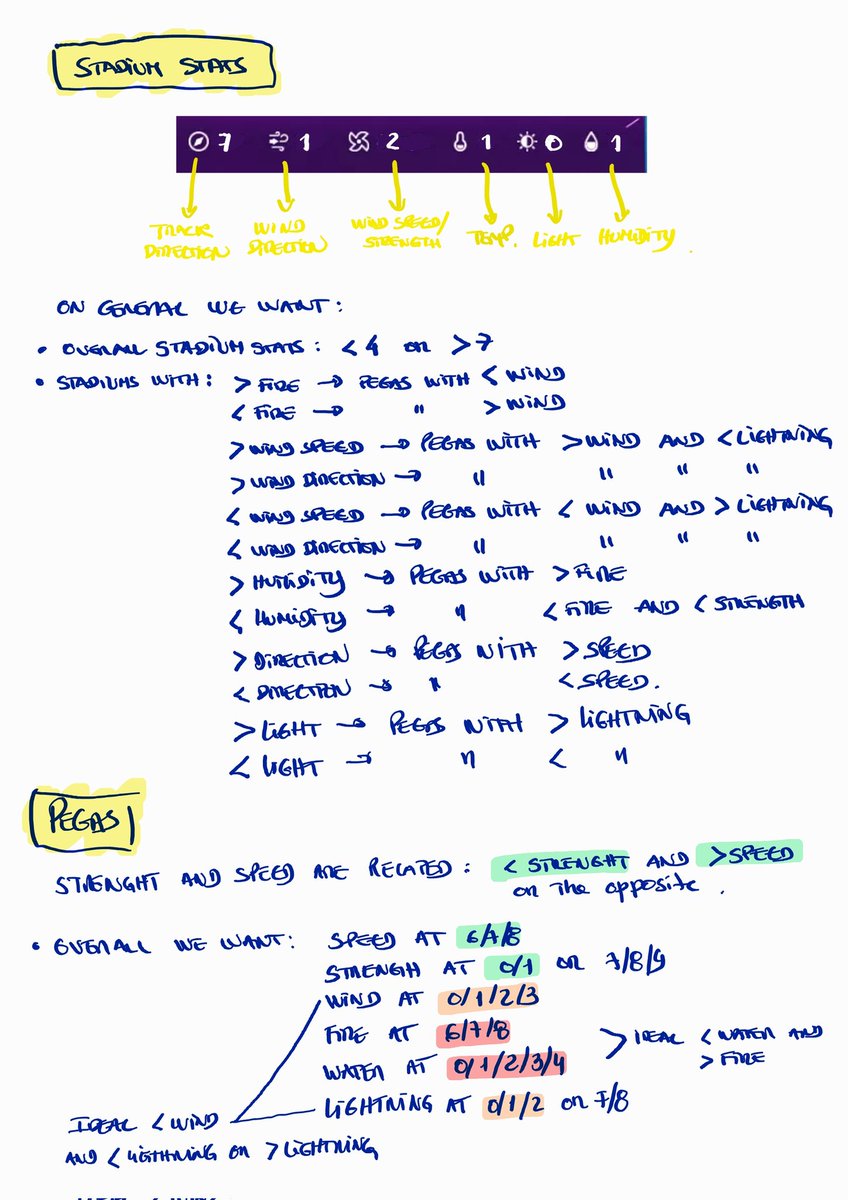 STADIUM STATS
7 1 2 1 0 1
TRACK DIRECTION
WIND DIRECTION
WIND SPEED/ STRENGTH
TEMP.
LIGHT
HUMIDITY.
ON GENERAL WE WANT:
• OVERALL STADIUM STATS: < 4 OR > 7
• STADIUMS WITH: > FIRE → PEGAS WITH < WIND
< FIRE → " > WIND
> WIND SPEED → PEGAS WITH > WIND AND < LIGHTNING
> WIND DIRECTION → " " " "
< WIND SPEED → PEGAS WITH < WIND AND > LIGHTNING
< WIND DIRECTION → " " " "
> HUMIDITY → PEGAS WITH > FIRE
< HUMIDITY → " < FIRE AND < STRENGTH
> DIRECTION → PEGAS WITH > SPEED
< DIRECTION → " < SPEED.
> LIGHT → PEGAS WITH > LIGHTNING
< LIGHT → " < "
PEGAS
STRENGHT AND SPEED ARE RELATED: < STRENGHT AND > SPEED
or the opposite.
• OVERALL WE WANT: SPEED AT 6/7/8
STRENGH AT 0/1 OR 7/8/9
WIND AT 0/1/2/3
FIRE AT 6/7/8
WATER AT 0/1/2/3/4
> IDEAL < WATER AND
> FIRE
LIGHTNING AT 0/1/2 OR 7/8
IDEAL < WIND
AND < LIGTHNING OR > LIGHTNING